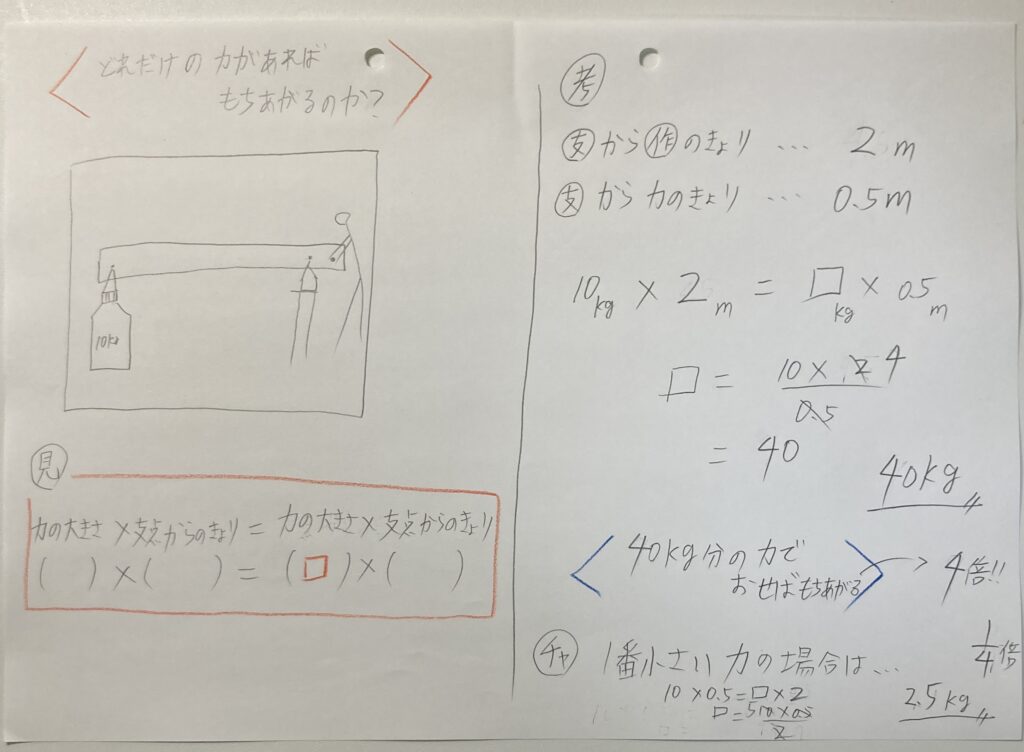 どれだけの力があれば
もちあがるのか?
10kg
見
力の大きさ×支点からのきょり=力の大きさ×支点からのきょり
( )×( )=(□)×( )
考
支から作のきょり … 2m
支から力のきょり … 0.5m
10kg × 2m = □kg × 0.5m
□= 10×2 4
0.5
= 40
40kg
40kg分の力で
おせばもちあがる → 4倍!!
チャ 1番小さい力の場合は… 1/4倍
10×0.5=□×2
□=510×0.5
2
2.5kg